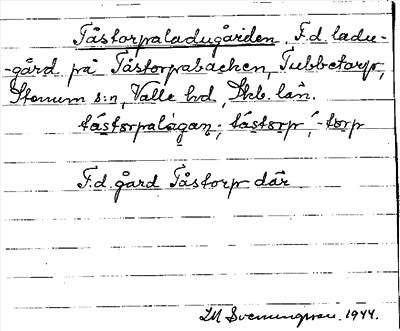 Tåstorpaladugården. F.d. ladu-
-gård på Tåstorpabacken, Tubbetorp,
Stenum s:n, Valle hd, Skb. län.
tåstorpalágan; tåstorp, -torp
F.d. gård Tåstorp där
LM Svenungsson. 1944.